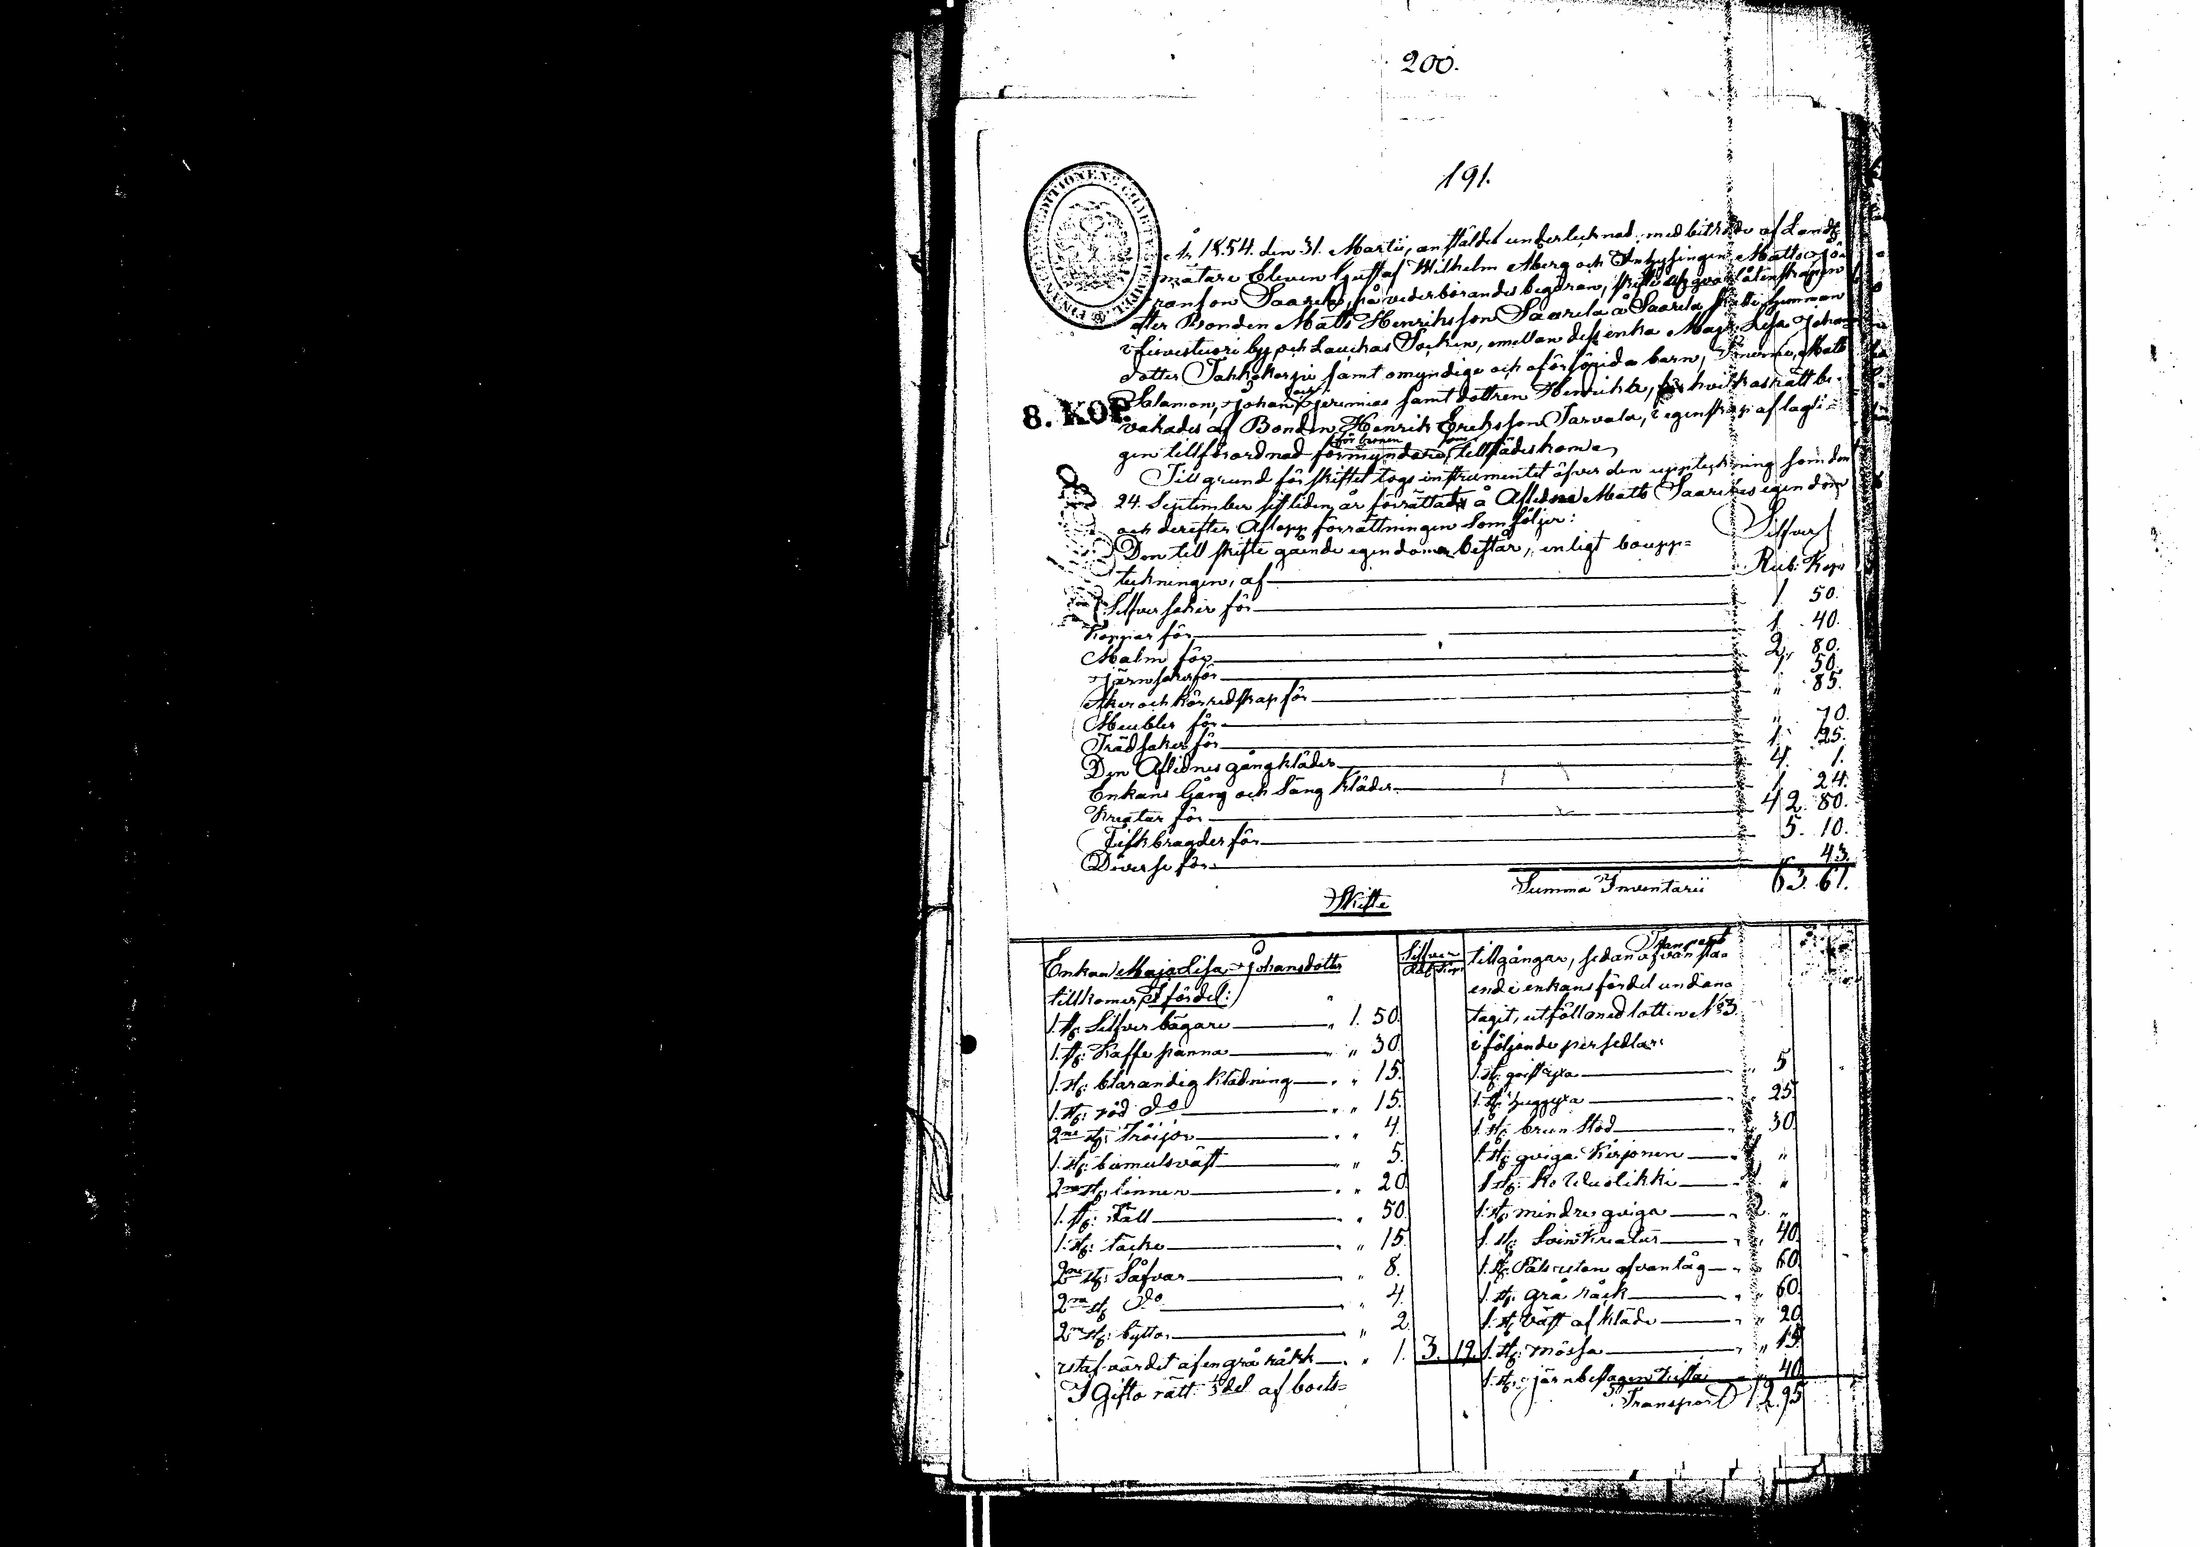 200.
191.
FINANCE EXPEDITIONENS CHARTÆ STEMPEL
8. KOP.
År 1854. den 31. Martii, anstäldes undertecknad, med biträde af Landt-
mätare Eleven Gustaf Wilhelm Åberg och Inhysingen Matts Jö-
ransson Saarela, på vederbörandes begäran, skifte af qvarlåtenskapen
efter Bonden Matts Henriksson Saarela å Saarela Skatte hemman
i by och Laukas Socken, emellan dess enka Maja Lisa Johans
dotter samt omyndige och oförsörjda barn, Sönerne, Matts
Salamon, Johan och Jeremias samt dottren Henrika, för hvilkas rätt be-
vakades af Bonden Henrik Eriksson Tarvala, i egenskap af lagli-
gen tillförordnad för barnen förmyndare, som tillstädeskom.
Till grund för skiftet togs instrumentet öfver den uppteckning som den
24. September sistliden år förrättats å Aflidne Matts Saarelas egendom
och derefter Aflopp förrättningen Som följer:
Den till skifte gående egendomen består, enligt boupp= Silfver
teckningen, af Rub. Kop.
Silfversaker för 1. 50.
Koppar för 1. 40.
Malm för 2. 80.
Jernsaker för 1. 50.
Åker och körredskap för " 85.
Meubler för " 70.
Trädsaker för 1. 25.
Den Aflidnes gångkläder 4. 1.
Enkans Gång och Säng kläder 1. 24.
Kreatur för 42. 80.
Fiskbragder för 5. 10.
Diverse för " 43.
Summa Inventarii 63. 61.
Skifte
Enkan Maja Lisa Johansdotter Silfver
tillkomer, I fördel:
1. st: Silfver bägare " 1. 50.
1. st: Kaffe panna " " 30.
1. st: blarandig klädning " " 15.
1. st: röd do " " 15.
2ne st: tröijor " " 4.
1. st: bomulsväst " " 5.
2ne st: linnen " " 20.
1. st: Fäll " " 50.
1. st: täcke " " 15.
2ne st: Såfvar " 8.
2ne st: do " 4.
2ne st: byttor " 2.
utaf värdet af en grå råkk " " 1. 3. 19.
I Gifto rätt 1/3 del af boets=
Transport
tillgångar, sedan ofvan stå=
ende enkans fördel undan=
tagit, utföll med lotten No 3.
i följande persedlar:
1. st: " 5
1. st: huggyxa " " 25.
1. st: brun Stod " " 30.
1. st: qviga Kirjonen "
1. st: Ko Wuolikki "
1. st: mindre qviga " 2 "
1. st: Svin Kreatur " " 40.
1. st: Päls utan ofvantåg " " 60.
1. st: grå råck " " 60.
1. st: väst af kläde " " 20.
1. st: mössa " " 15.
1. st: järnbeslagen kista " 40.
Transport 12.95